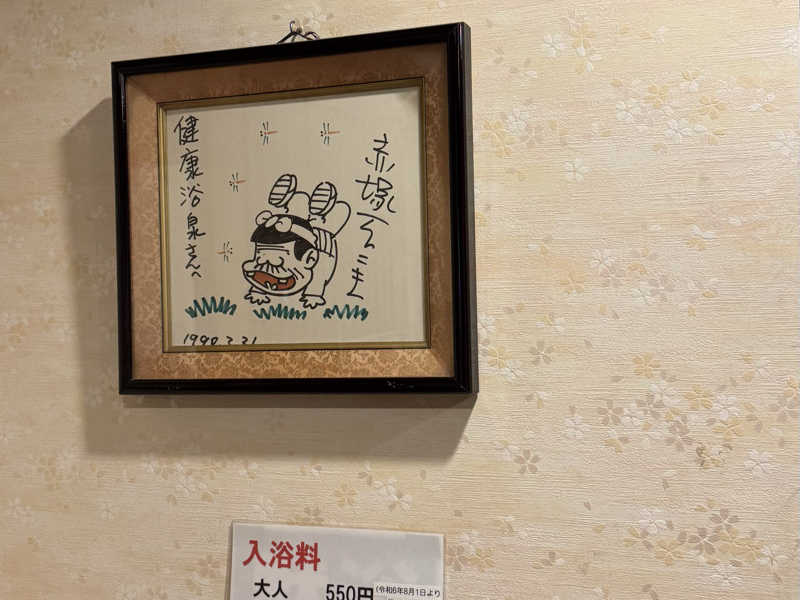 赤塚不二夫
健康浴泉さんへ
1990 2 21
入浴料
大人 550円 (令和6年8月1日より